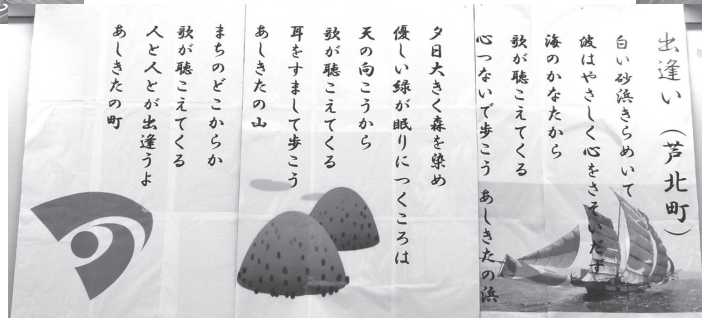 出逢い（芦北町）
白い砂浜きらめいて
波はやさしく心をさそいだす
海のかなたから
歌が聴こえてくる
心つないで歩こう あしきたの浜
夕日大きく森を染め
優しい緑が眠りにつくころは
天の向こうから
歌が聴こえてくる
耳をすまして歩こう
あしきたの山
まちのどこからか
歌が聴こえてくる
人と人とが出逢うよ
あしきたの町